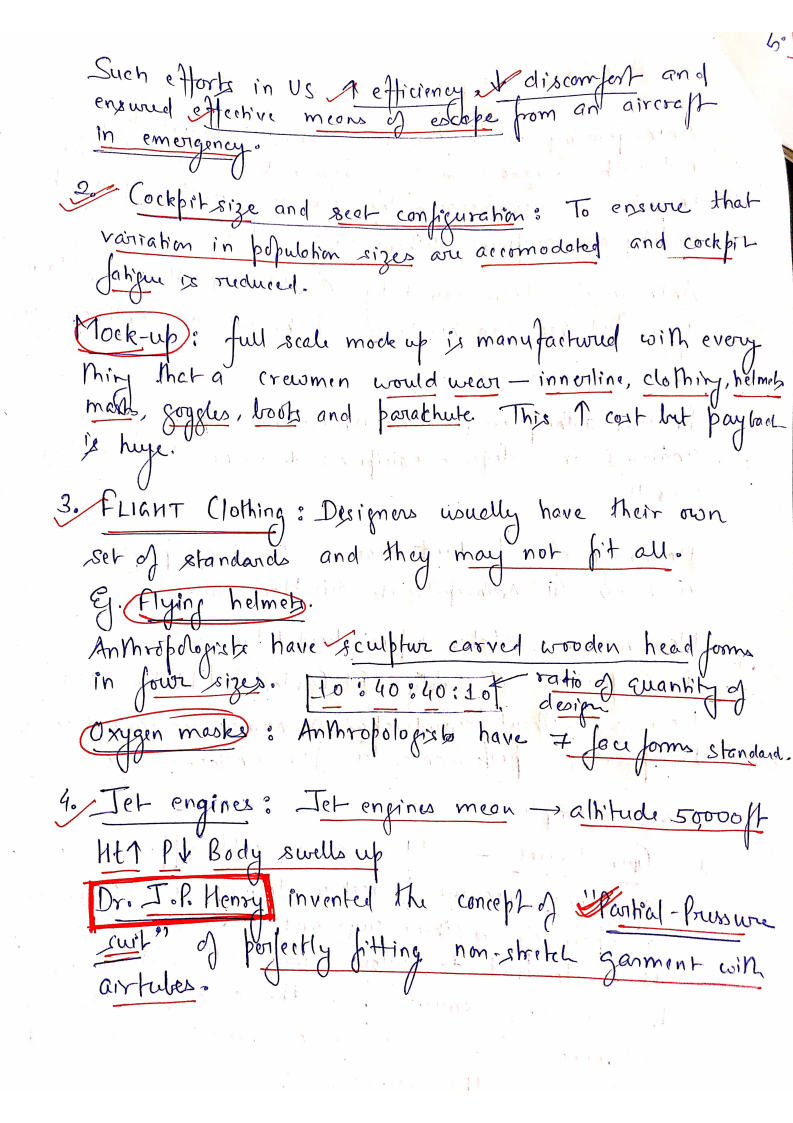 5.
Such efforts in US ↑ efficiency, ↓ discomfort and
ensured effective means of escape from an aircraft
in emergency.
2. Cockpit size and seat configuration: To ensure that
variation in population sizes are accomodated and cockpit
fatigue is reduced.
Mock-up: full scale mock up is manufactured with every
thing that a crewmen would wear — innerline, clothing, helmets
mask, goggles, boots and parachute. This ↑ cost but payback
is huge.
3. FLIGHT Clothing: Designers usually have their own
set of standards and they may not fit all.
Eg. Flying helmets.
Anthropologists have sculptur carved wooden head forms
in four sizes. 10:40:40:10 ← ratio of quantity of
design
Oxygen masks: Anthropologists have 7 face forms standard.
4. Jet engines: Jet engines mean → altitude 50,000ft
Ht↑ P↓ Body swells up
Dr. J.P. Henry invented the concept of "Partial-Pressure
suit" of perfectly fitting non-stretch garment with
airtubes.